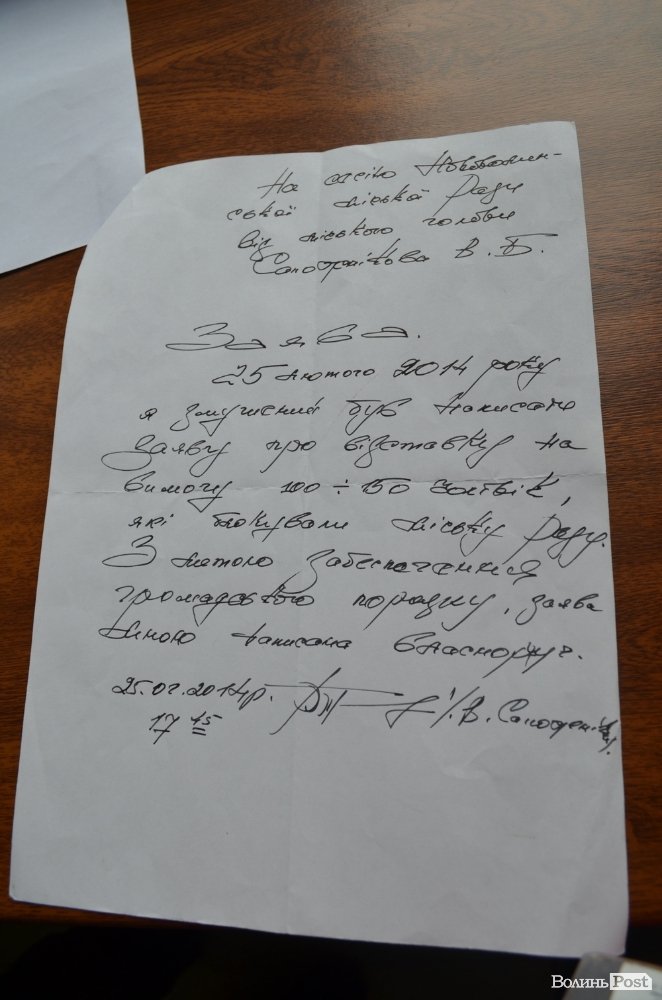 На сесію Нововолин-
ської міської Ради
від міського голови
Сапожнікова В. Б.
Заява.
25 лютого 2014 року
я змушений був написати
заяву про відставку на
вимогу 100÷150 чоловік,
які блокували міську Раду.
З метою забезпечення
громадського порядку, заява
мною написана власноруч.
25.02.2014р. /В. Сапожніков/.
17 45
ВолиньPost